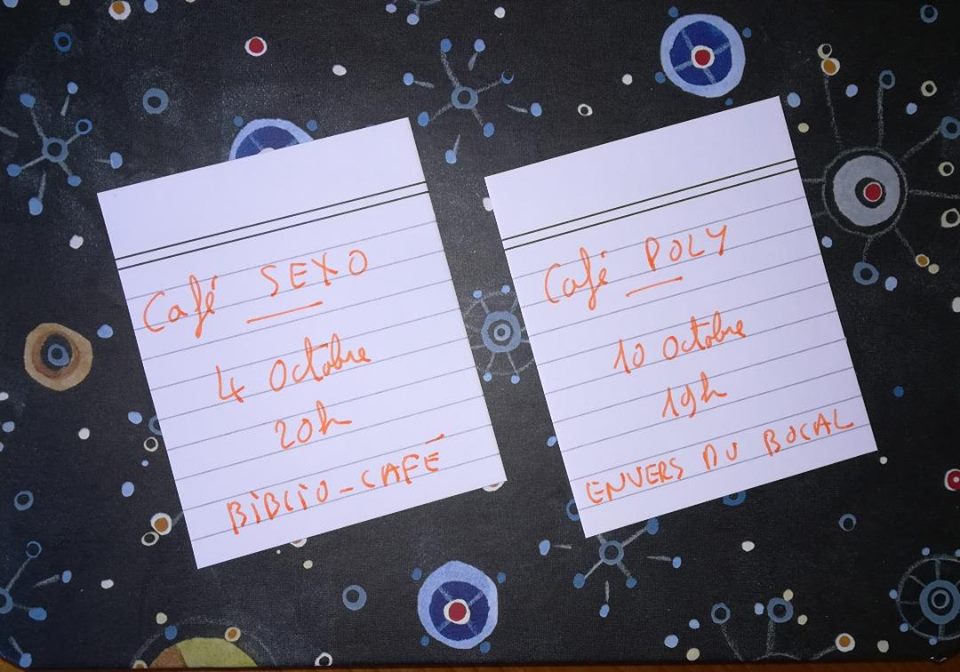 Café SEXO
4 Octobre
20h
BIBLIO-CAFÉ
Café POLY
10 Octobre
19h
ENVERS DU BOCAL